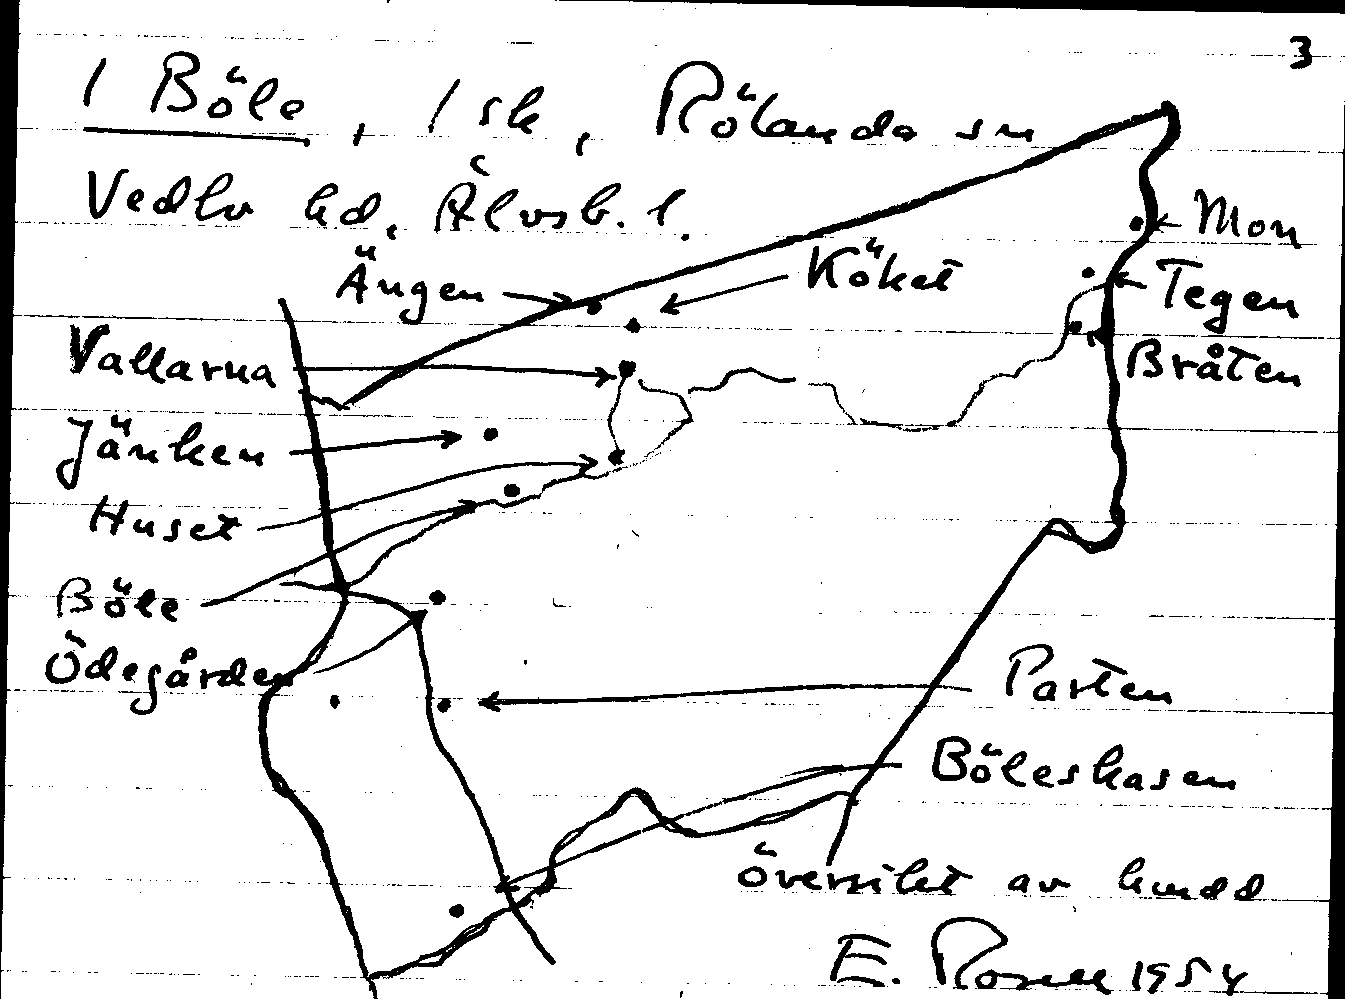 3
1 Böle, 1 sk, Rölanda sn
Vedbo hd, Älvsb. l.
Ängen
Köket
Mon
Tegen
Vallarna
Bråten
Jänken
Huset
Böle
Ödegården
Parten
Böleskasen
översikt av
E. 1954